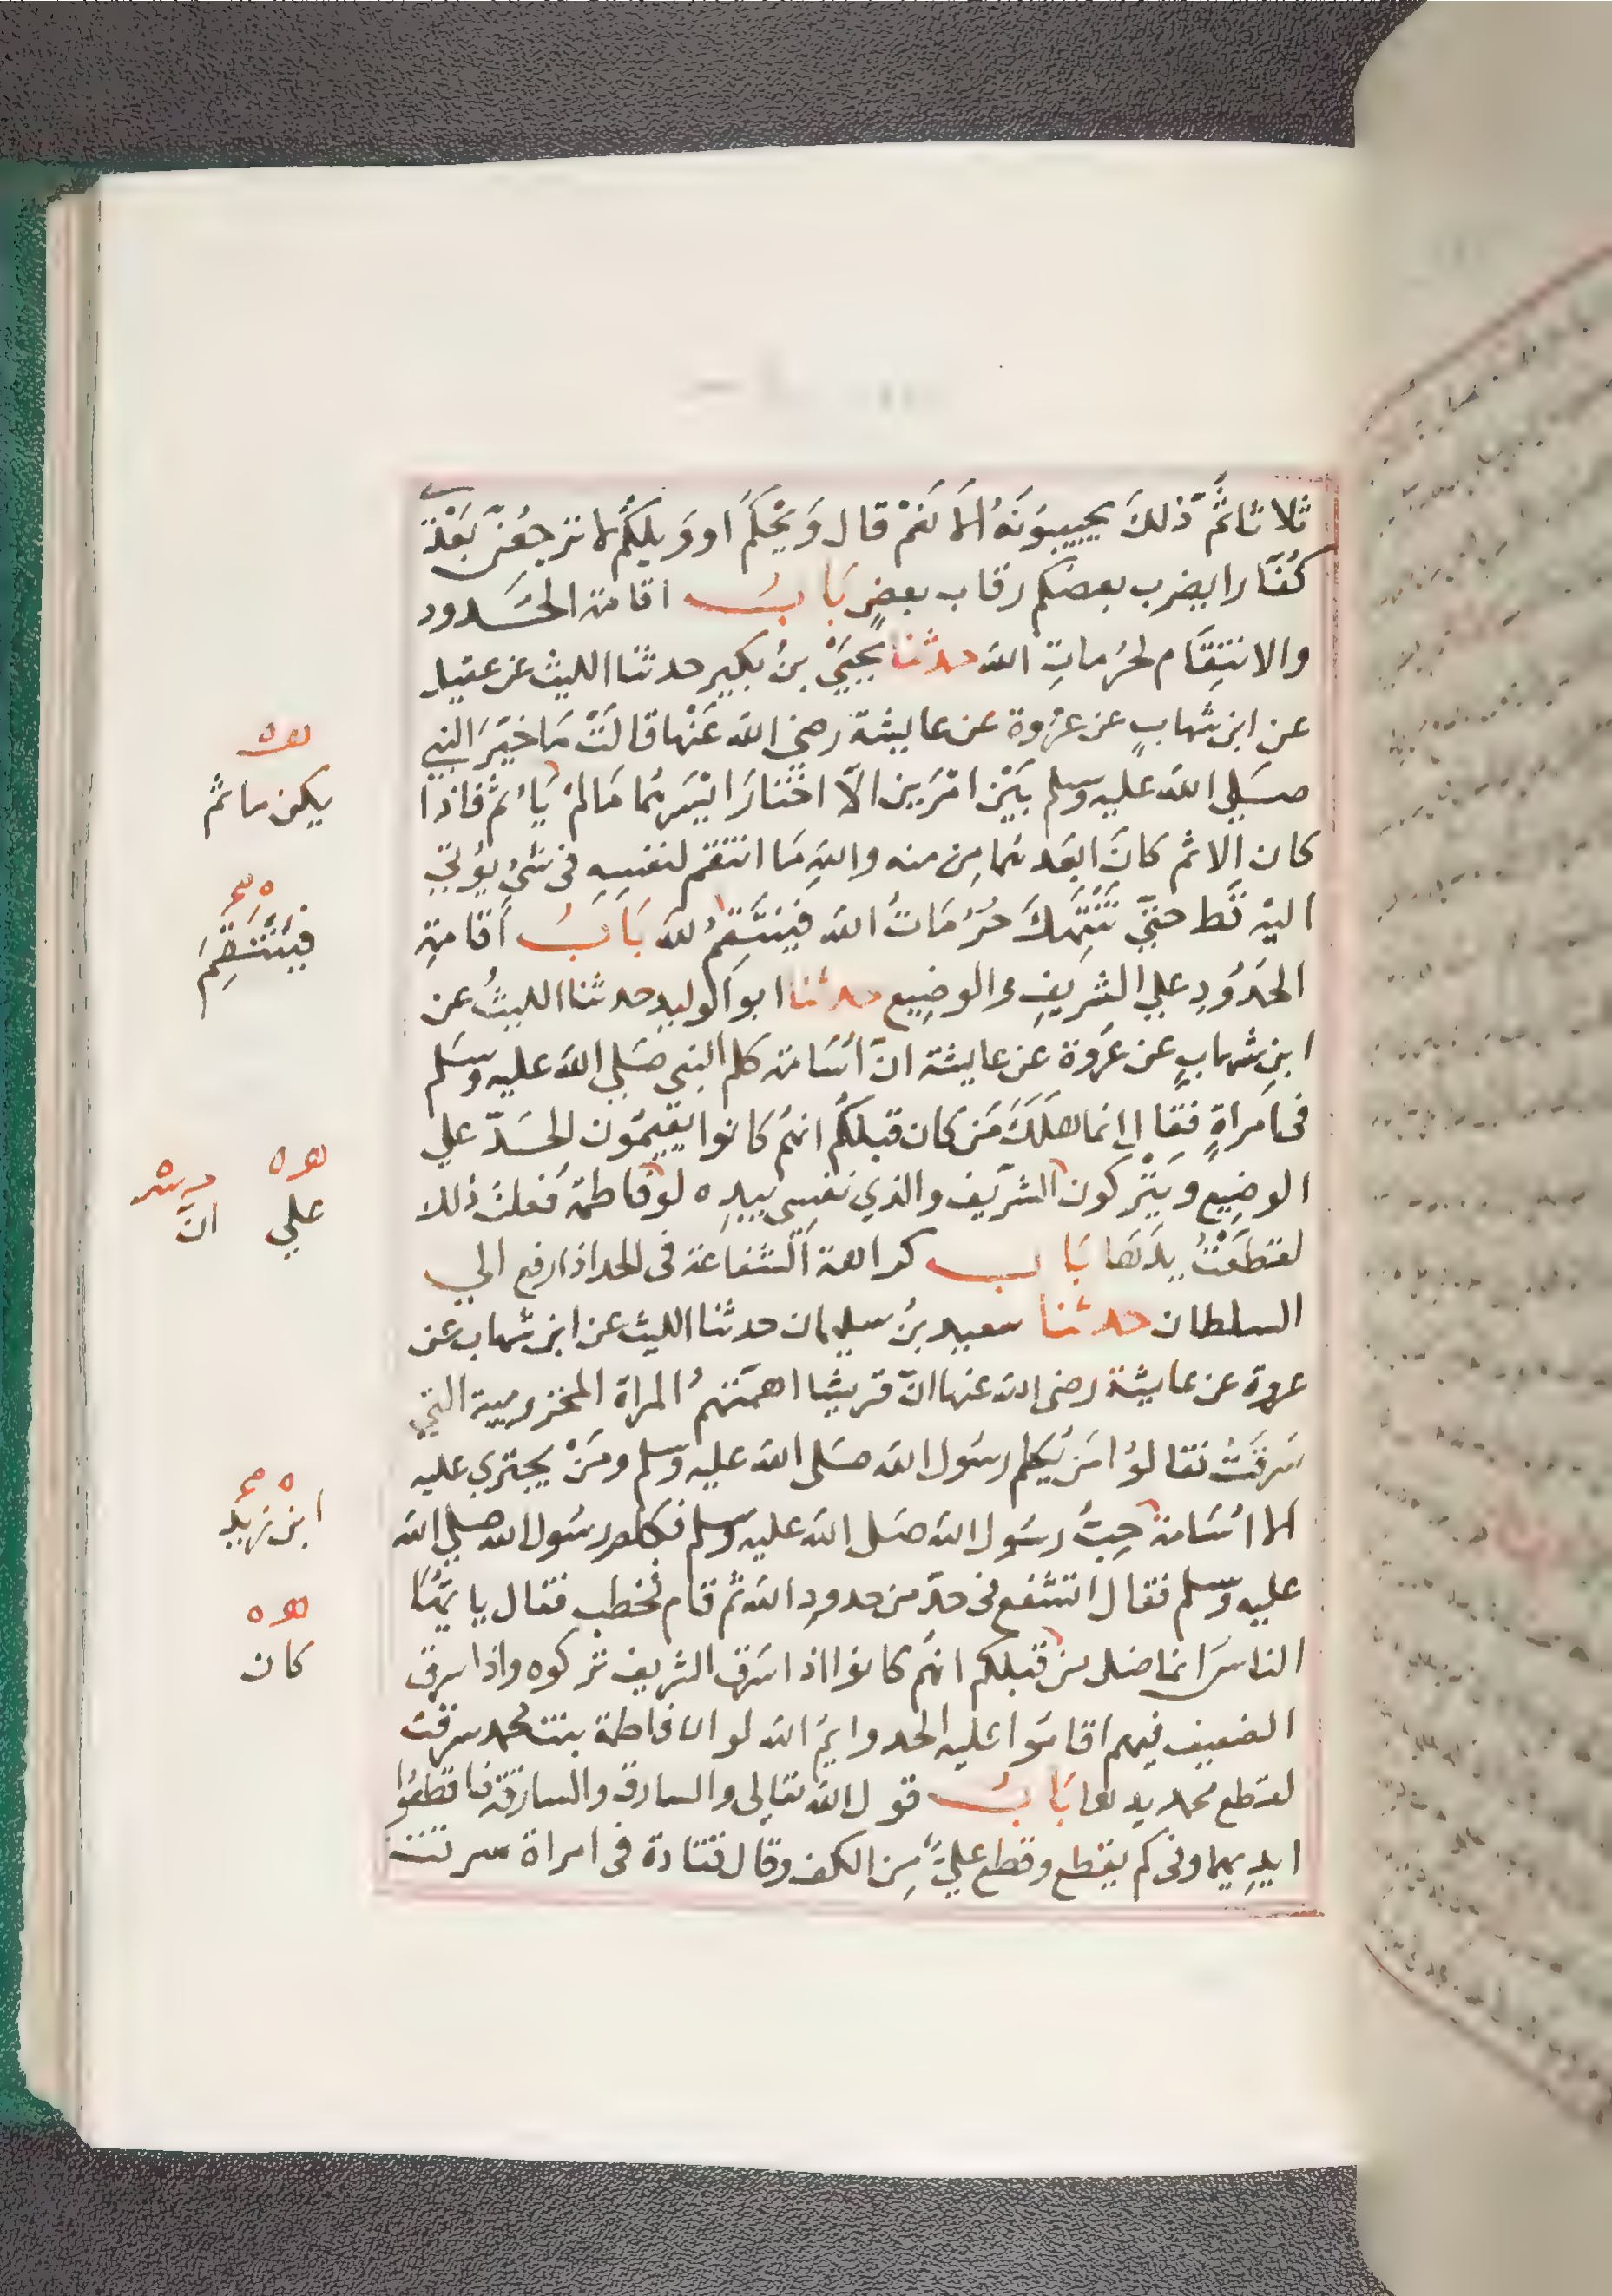 ثلاثا ثمّ ذلك يجيبونه الا نعم قال ويحكم او ويلكم لا ترجعنّ بعدي
كفّارا يضرب بعضكم رقاب بعض باب اقامة الحدود
والانتقام لحرمات الله حدثنا يحيي بن بكير حدثنا الليث عن عقيل
عن ابن شهاب عن عروة عن عايشة رضي الله عنها قالت ما خير النبي
صلي الله عليه وسلم بين امرين الّا اختار ايسرهما ما لم ياثم فاذا
كان الاثم كان ابعدهما من منه والله ما انتقم لنفسه في شئ يؤتي
اليه قط حتي تنتهك حرمات الله فينتقم لله باب اقامة
الحدود علي الشريف والوضيع حدثنا ابو الوليد حدثنا الليث عن
ابن شهاب عن عروة عن عايشة انّ اسامة كلم النبي صلي الله عليه وسلم
في امراة فقال انما هلك من كان قبلكم انهم كانوا يقيمون الحدّ علي
الوضيع ويتركون الشريف والذي نفسي بيده لو فاطمة فعلت ذلك
لقطعت يدها باب كراهة الشفاعة في الحد اذا رفع الي
السلطان حدثنا سعيد بن سليمان حدثنا الليث عن ابن شهاب عن
عروة عن عايشة رضي الله عنها انّ قريشا اهمتهم المراة المخزومية التي
سرقت فقالوا من يكلم رسول الله صلى الله عليه وسلم ومن يجتري عليه
الا اسامة حبّ رسول الله صلى الله عليه وسلم فكلم رسول الله صلي الله
عليه وسلم فقال اتشفع في حدّ من حدود الله ثم قام فخطب فقال يا ايّها
الناس انما ضل من قبلكم انهم كانوا اذا سرق الشريف تركوه واذا سرق
الضعيف فيهم اقاموا عليه الحد وايم الله لو ان فاطمة بنت محمد سرقت
لقطع محمد يدها باب قول الله تعالى والسارق والسارقة فاقطعوا
ايديهما وفي كم يقطع وقطع عليّ من الكف وقال قتادة في امراة سرقت
يكن ماثم
فينتقم
علي انّ
ابن زيد
كان